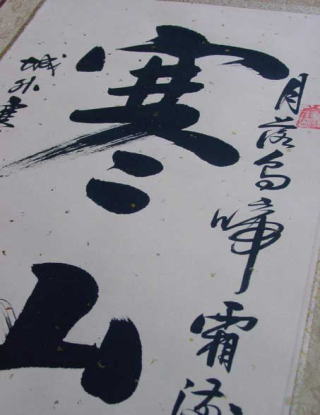 月落烏啼霜滿
寒山
城外寒